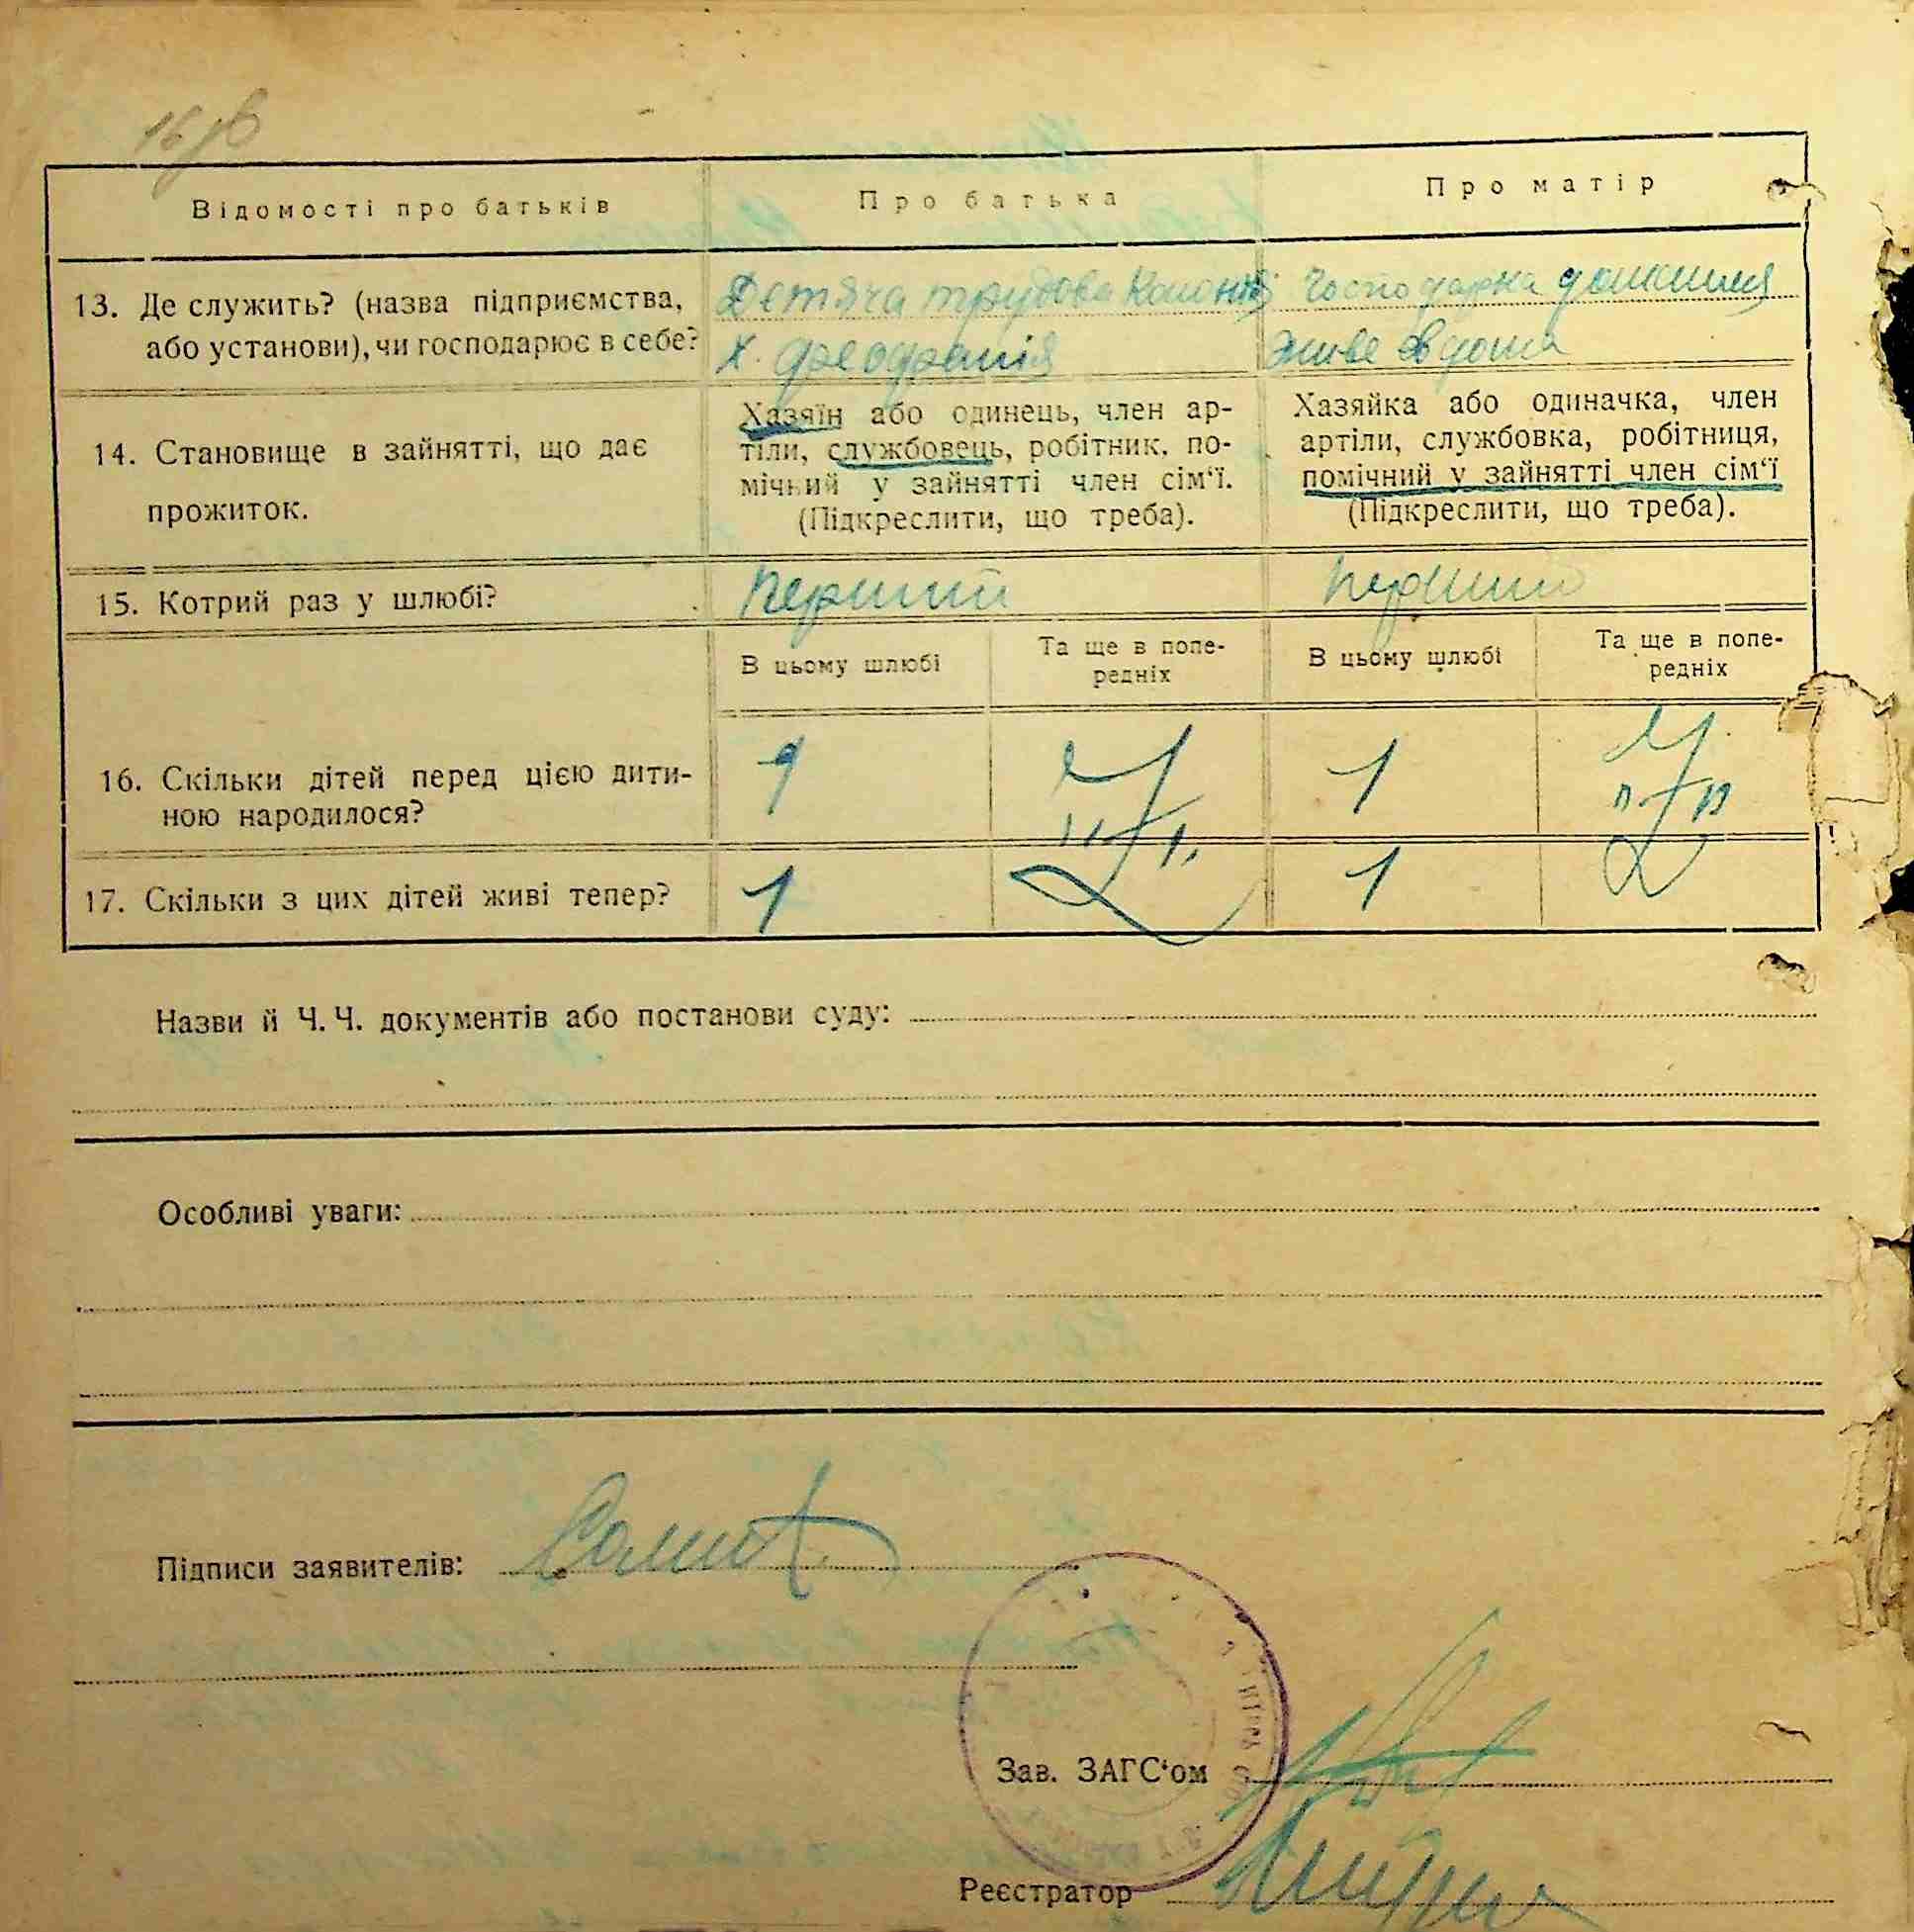 16 зв
Відомості про батьків
Про батька
Про матір
13. Де служить? (назва підприємства,
або установи), чи господарює в себе?
Детяча трудова Колонія
х.
Господарка домашня
живе вдома
14. Становище в зайнятті, що дає
прожиток.
Хазяїн або одинець, член ар-
тіли, службовець, робітник, по-
мічний у зайнятті член сім'ї.
(Підкреслити, що треба).
Хазяйка або одиначка, член
артіли, службовка, робітниця,
помічний у зайнятті член сім'ї
(Підкреслити, що треба).
15. Котрий раз у шлюбі?
Перший
Перший
В цьому шлюбі
Та ще в попе-
редніх
В цьому шлюбі
Та ще в попе-
редніх
16. Скільки дітей перед цією дити-
ною народилося?
1
1
17. Скільки з цих дітей живі тепер?
1
1
Назви й Ч. Ч. документів або постанови суду:
Особливі уваги:
Підписи заявителів:
Зав. ЗАГС'ом
Реєстратор